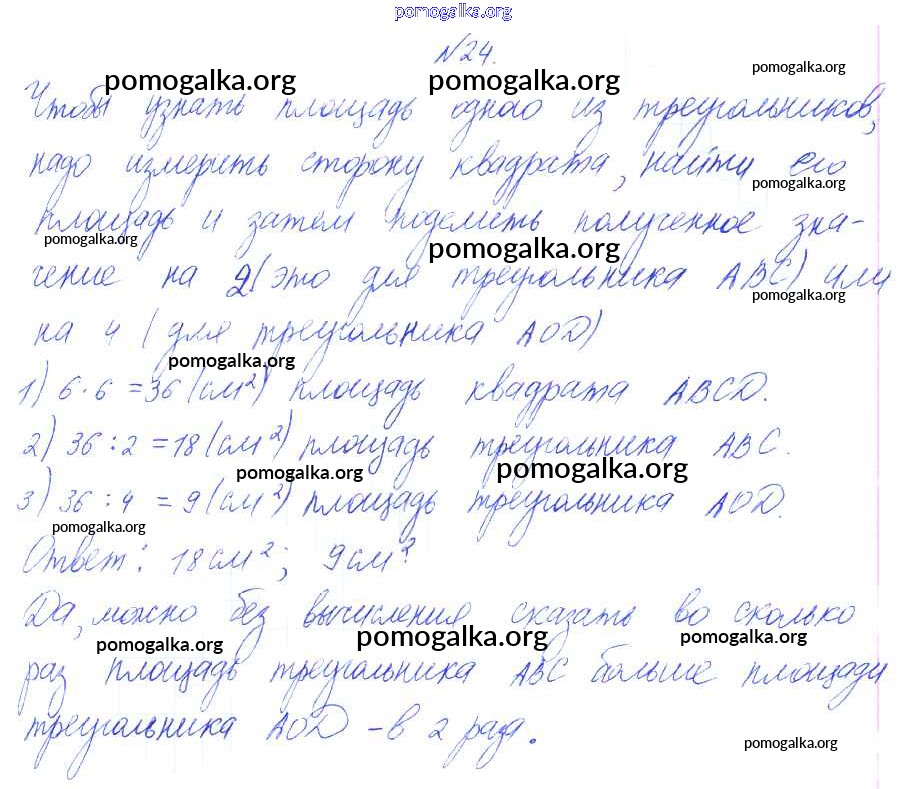 pomogalka.org
№24.
pomogalka.org pomogalka.org pomogalka.org
Чтобы узнать площадь однао из треугольников,
надо измерить сторону квадрата, найти его
pomogalka.org
площадь и затем поделить полученное зна-
pomogalka.org pomogalka.org
чение на 2 (это для треугольника ABC) или
pomogalka.org
на 4 (для треугольника AOD)
pomogalka.org
1) 6·6=36 (см²) площадь квадрата ABCD.
2) 36:2=18 (см²) площадь треугольника ABC.
pomogalka.org pomogalka.org
3) 36:4=9 (см²) площадь треугольника AOD.
pomogalka.org
Ответ: 18см²; 9см²
Да, можно без вычисления сказать во сколько
pomogalka.org pomogalka.org pomogalka.org
раз площадь треугольника ABC больше площади
треугольника AOD - в 2 рада.
pomogalka.org